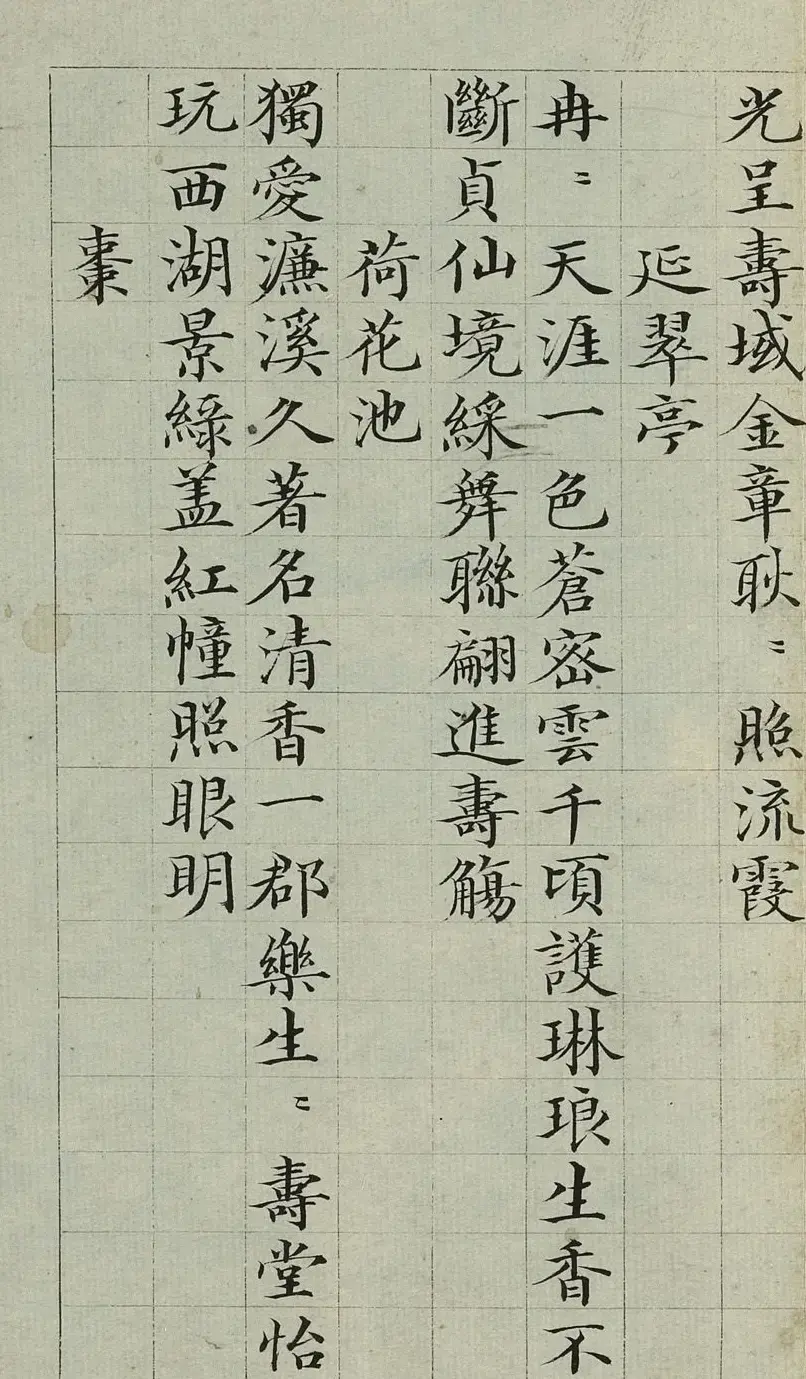 光呈壽域金章耿〻照流霞
延翠亭
冉〻天涯一色蒼密雲千頃護琳琅生香不
斷貞仙境綵舞聯翩進壽觴
荷花池
獨愛濂溪久著名清香一郡樂生〻壽堂怡
玩西湖景綠盖紅幢照眼明
棗